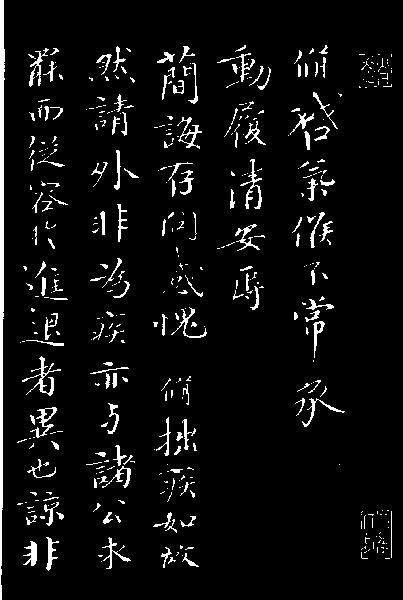 脩啓氣候不常承
動履清安辱
簡誨存問感愧 脩拙疾如故
然請外非為疾亦与諸公求
罷而從容於進退者異也諒非